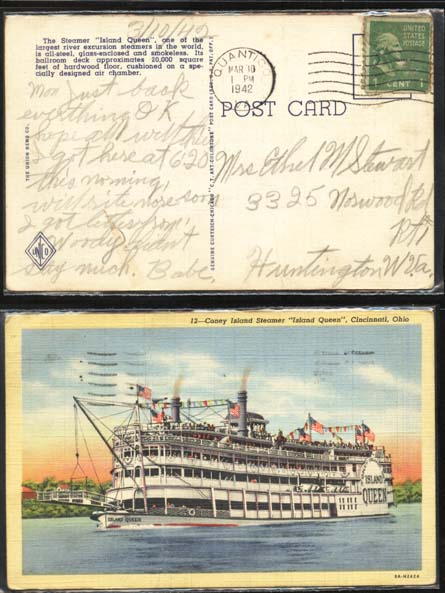 The Steamer "Island Queen", one of the
largest river excursion steamers in the world,
is all-steel, glass-enclosed and smokeless. Its
ballroom deck approximates 20,000 square
feet of hardwood floor, cushioned on a spe-
cially designed air chamber.
3/10/42
Mom Just back
everthing O K
hope all well there
I got here at 6:20
this morning,
will write more soon
I got letter from
Woody didn't
say much. Babe.
THE UNION NEWS CO.
UNCO
GENUINE CURTEICH-CHICAGO "C. T. ART-COLORTONE" POST CARD (REG. U.S. PAT. OFF.)
QUANTICO
MAR 10
1 PM
1942
VA.
UNITED
STATES
POSTAGE
1 CENT 1
POST CARD
Mrs Ethel M Stewart
3325 Norwood Rd
Rt 1
Huntington W Va.
12—Coney Island Steamer "Island Queen", Cincinnati, Ohio
ISLAND
QUEEN
ISLAND QUEEN
8A-H2424